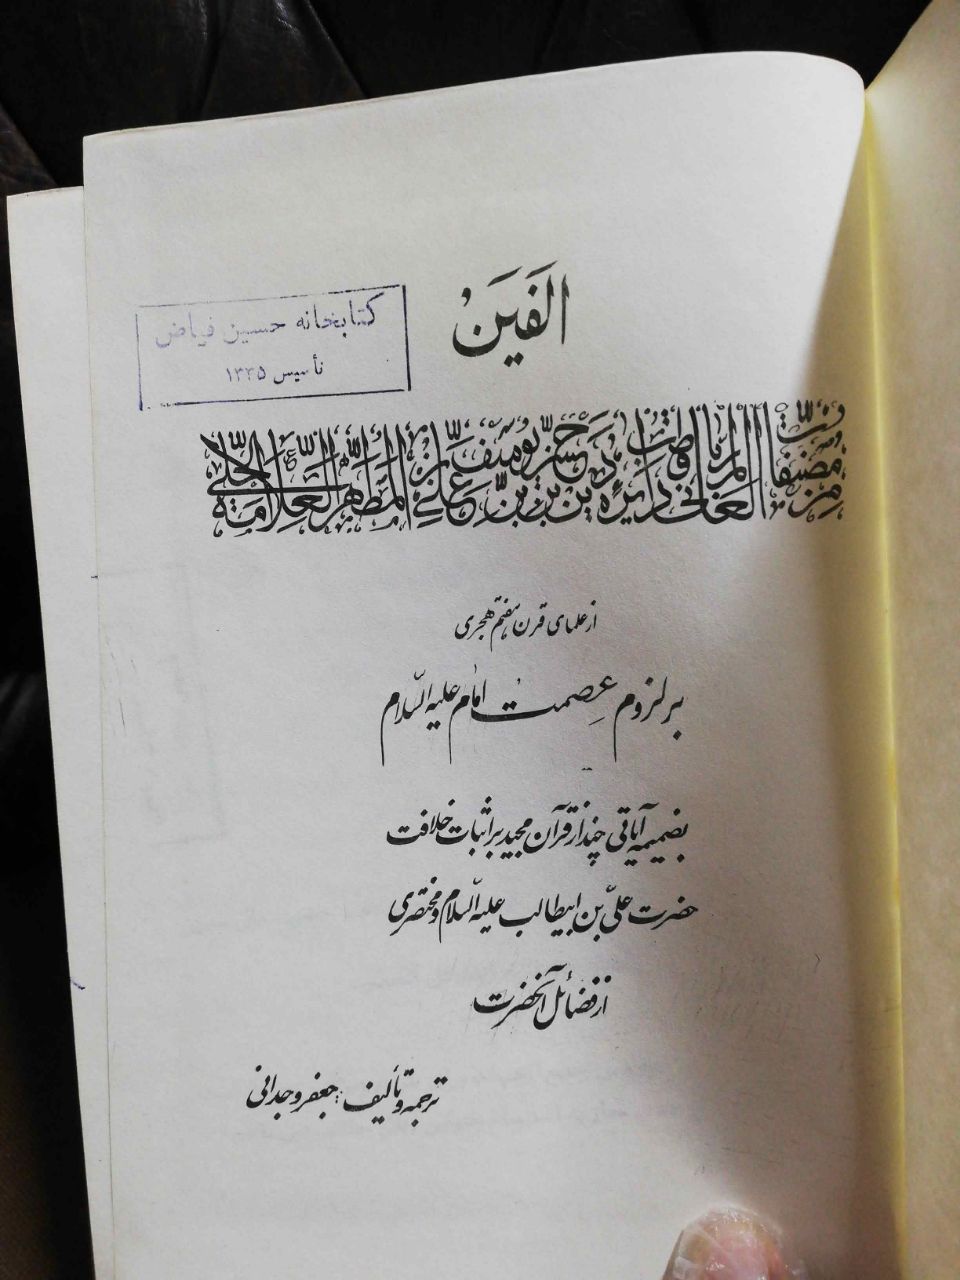 الفَیَن
کتابخانه حسین فیاض
تأسیس ۱۳۴۵
من مصنفات العالم الربانی دائرة حسن بن یوسف بن علی بن المطهر العلامة الحلی
از علمای قرن هفتم هجری
بر لزوم عصمت امام علیه السّلام
بضمیمه آیاتی چند از قرآن مجید بر اثبات خلافت
حضرت علیّ بن ابیطالب علیه السّلام و مختصری
از فضائل آنحضرت
ترجمه و تألیف: جعفر وجدانی